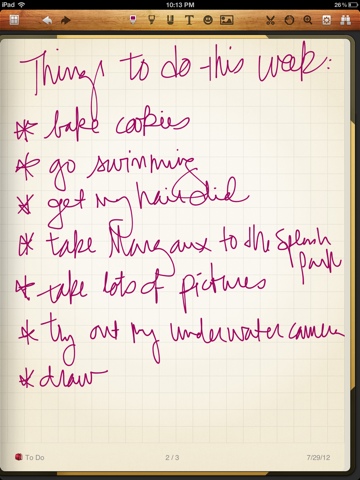 iPad 10:13 PM 26%
Things to do this week:
* bake cookies
* go swimming
* get my hair did
* take Margaux to the Splash
park
* take lots of pictures
* try out my underwater camera
* draw
To Do 2 / 3 7/29/12